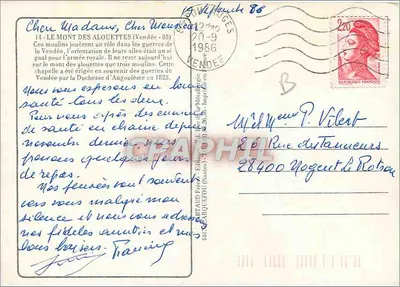 15 Septembre 86
Chère Madame, Cher Monsieur
14 - LE MONT DES ALOUETTES (Vendée - 85)
Ces moulins jouèrent un rôle dans les guerres de
Vendée, l'orientation de leurs ailes était un si-
gnal pour l'armée royale. Il reste aujourd'hui
sur le mont des alouettes que trois moulins. Cette
chapelle a été érigée en souvenir des guerres de
Vendée par la Duchesse d'Angoulême en 1823.
Nous vous espérons en bonne
santé tous les deux.
Pour nous après des ennuis
de santé en chaîne depuis
novembre dernier nous
prenons quelques jours
de repos.
Nos pensées vont souvent
vers vous malgré mon
silence et nous vous adressons
nos fidèles amitiés et nos
bons baisers. Francine
20-9
1986
VENDEE
2,20
REPUBLIQUE FRANCAISE
B
Mr et Mme P. Vibert
211 Rue des Tanneurs
28400 Nogent le Rotrou
CPAPHIL